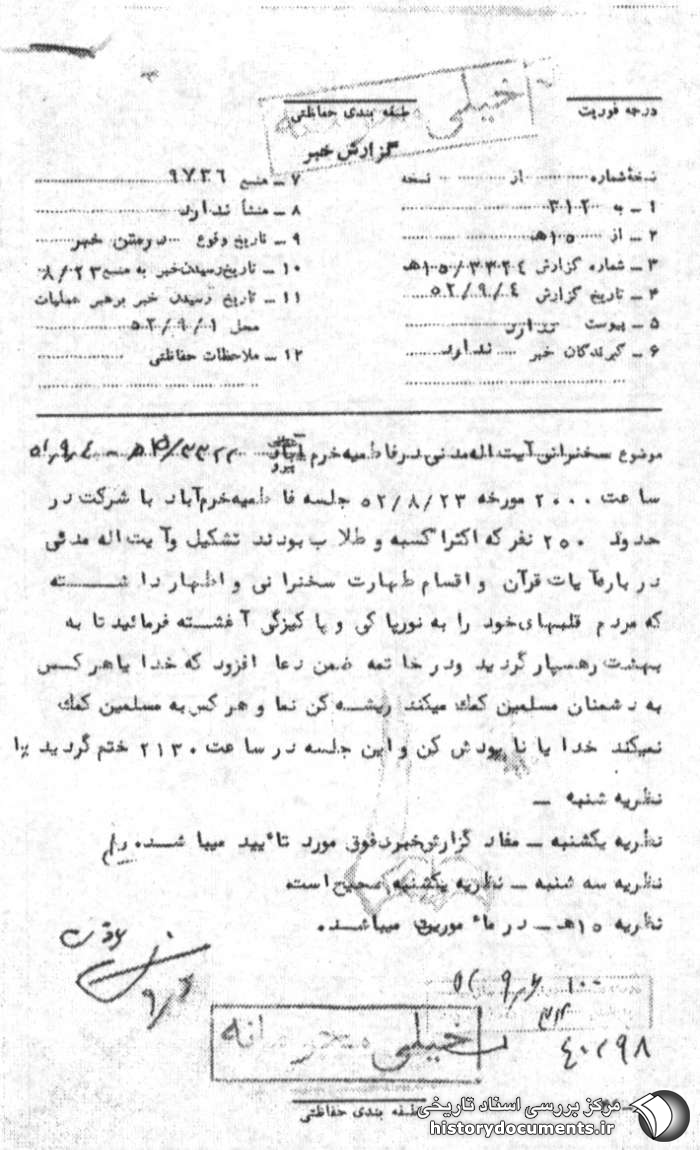 خیلی محرمانه
درجه فوریت
طبقه بندی حفاظتی
گزارش خبر
نسخهٔ شماره از نسخه
۱ ـ به ۳۱۲
۲ ـ از ۱۵ هـ
۳ ـ شماره گزارش ۱۵/۳۳۲۴ هـ
۴ ـ تاریخ گزارش ۵۲/۹/۴
۵ ـ پیوست ندارد
۶ ـ گیرندگان خبر ندارد
۷ ـ منبع ۹۷۳۶
۸ ـ منشأ ندارد
۹ ـ تاریخ وقوع درمتن خبر
۱۰ ـ تاریخ رسیدن خبر به منبع ۸/۲۳
۱۱ ـ تاریخ رسیدن خبر برهبر عملیات
محل ۵۲/۹/۱
۱۲ ـ ملاحظات حفاظتی
موضوع سخنرانی آیت اله مدنی درفاطمیه خرم آباد
پیرو
ساعت ۲۰۰۰ مورخه ۵۲/۸/۲۳ جلسه فاطمیه خرم‌آباد با شرکت در
حدود ۲۵۰ نفر که اکثرا کسبه و طلاب بودند تشکیل وآیت اله مدنی
درباره آیات قرآن و اقسام طهارت سخنرانی و اظهار داشته
که مردم قلبهای خود را به نورپاکی و پاکیزگی آغشته فرمائید تا به
بهشت رهسپار گردید ودر خاتمه ضمن دعا افزود که خدایا هر کس
به دشمنان مسلمین کمك میکند ریشه کن نما و هر کس به مسلمین کمك
نمیکند خدایا نابودش کن و این جلسه در ساعت ۲۱۳۰ ختم گردید
نظریه شنبه ـ
نظریه یکشنبه ـ مفاد گزارش خبر فوق مورد تائید میباشد.
نظریه سه شنبه ـ نظریه یکشنبه صحیح است.
نظریه ۱۵ هـ ـ در مأموریت میباشد.
۹/۶
۴۰۲۹۸
خیلی محرمانه
طبقه بندی حفاظتی
مرکز بررسی اسناد تاریخی
historydocuments.ir